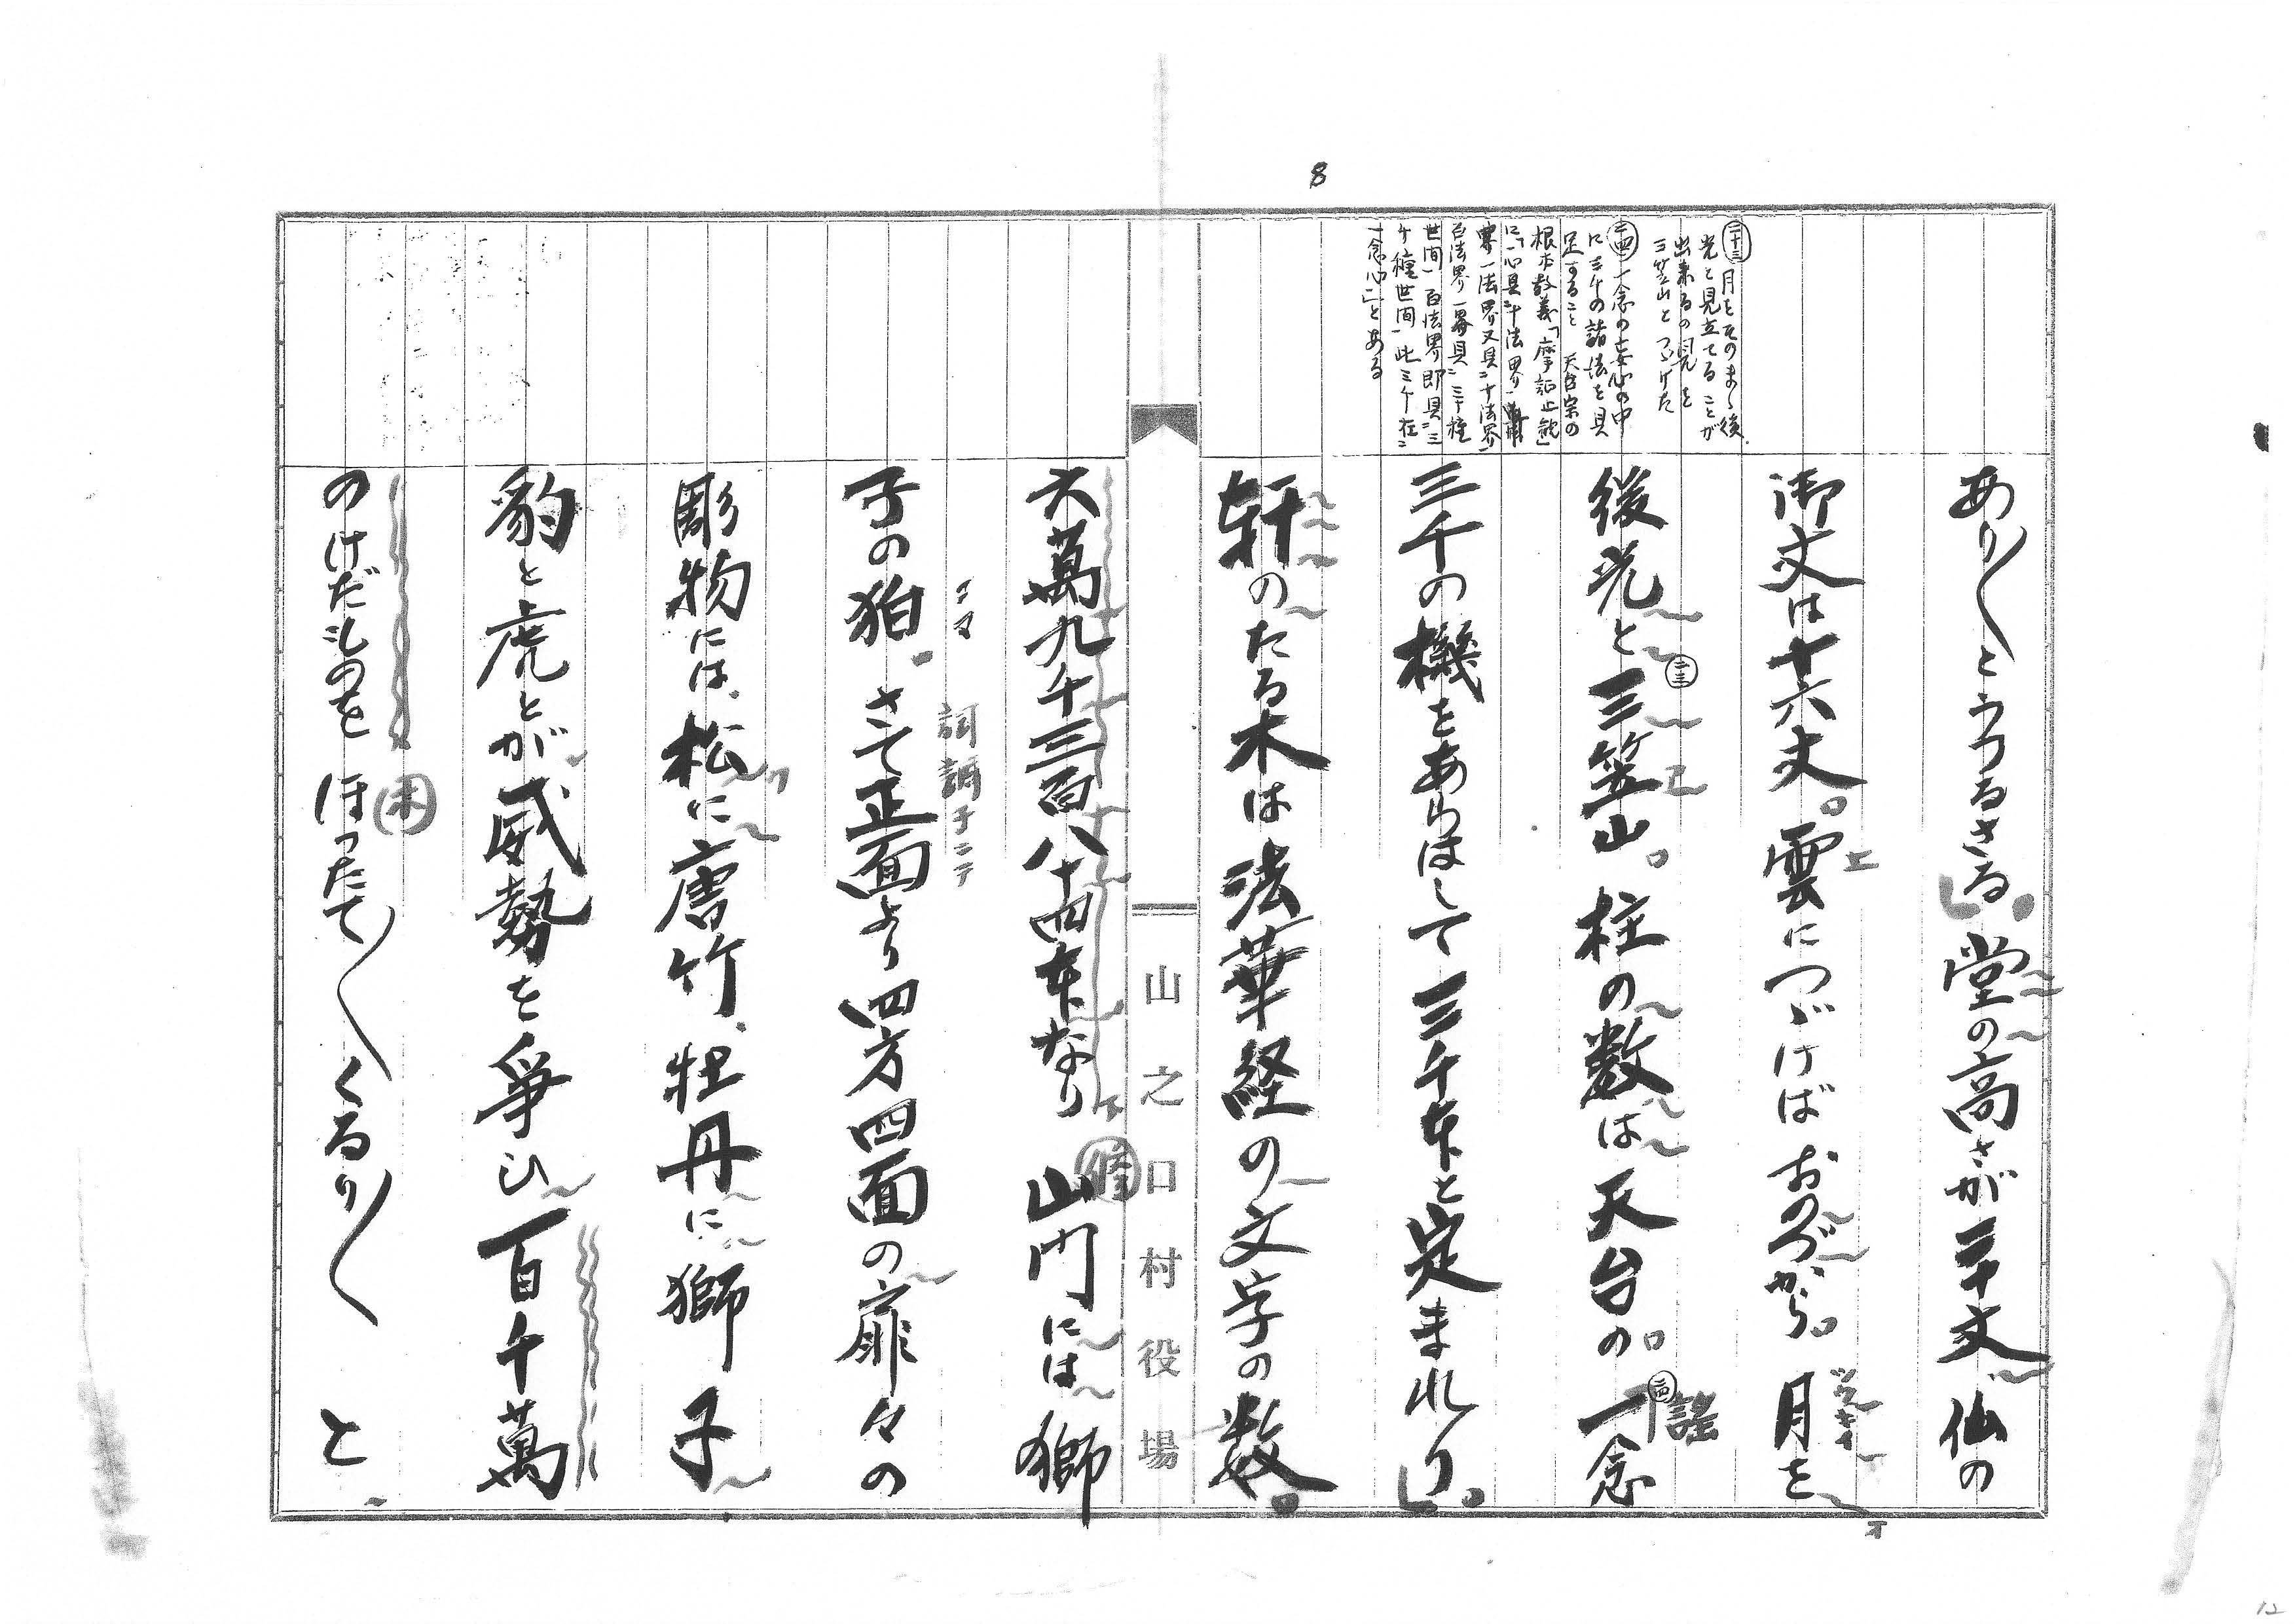 8
二十三 月をそのまゝ後
光と見立てることが
出来るの見を
三笠山とつゞけた
二四 一念の妄心の中
に三千の諸法を具
足すること 天台宗の
根本教義「摩訶止観」
に「一心具二十法界一
界一法界又具二十法界
百法界一界具二三十種
世間一百法界即具二三
千種世間一此三千在二
一念心一」とある
あり〳〵とうつるさる 堂の高さが三十丈 仏の
御丈は十六丈。雲につゞけばおのづから 月を
後光と三笠山。柱の数は天台の 一念
三千の機をあらはして三千本と定まれり
軒のたる木は法華経の文字の数
六萬九千三百八十四本なり 山門には獅
子の狛 さて正面より四方四面の扉々の
詞 調子ニテ
彫物には、松に唐竹、牡丹に獅子
豹と虎とが威勢を争ひ 百千萬
のけだものを ほつたて〳〵くるり〳〵と
山之口村役場
12